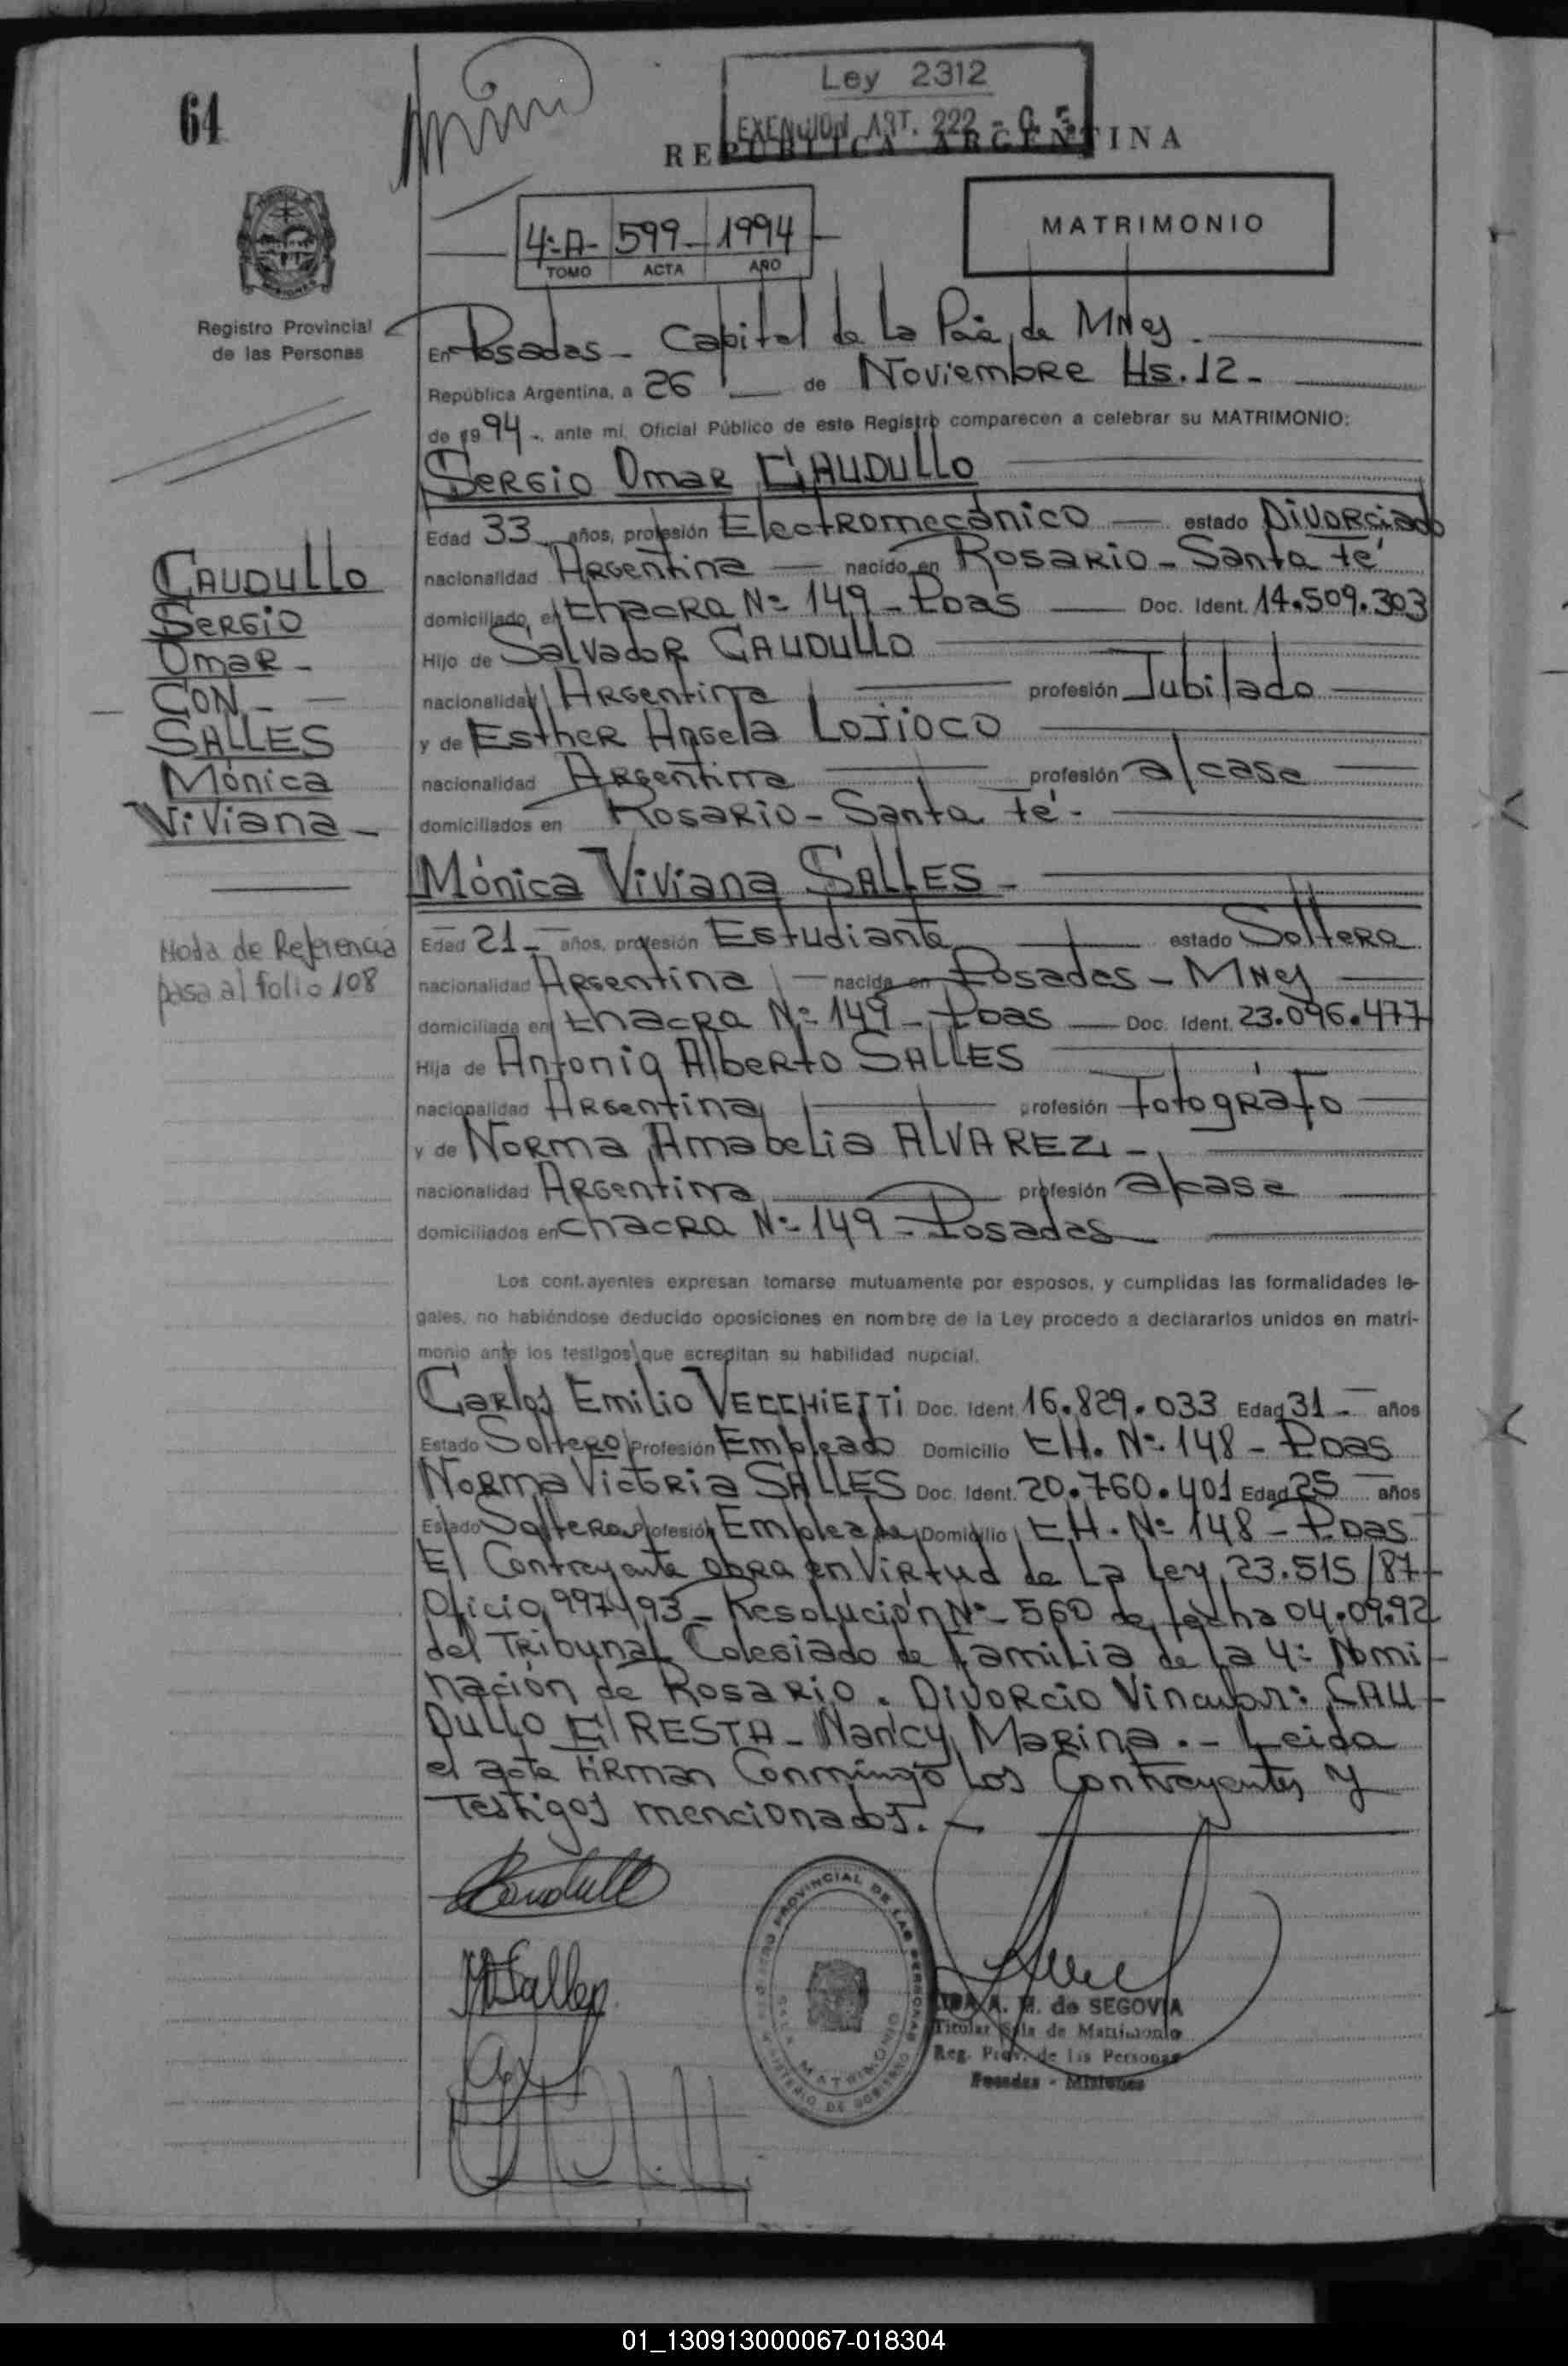 Ley 2312
EXENCION ART. 222 - C. F.
64
REPUBLICA ARGENTINA
MATRIMONIO
4º-A- 599- 1994
TOMO ACTA AÑO
Registro Provincial
de las Personas
En Posadas - Capital de La Pcia, de MNes.
República Argentina, a 26 de Noviembre Hs. 12.
de 1994-, ante mi, Oficial Público de este Registro comparecen a celebrar su MATRIMONIO:
Sergio Omar CAUDULLO
Edad 33 años, profesión Electromecánico estado Divorciado
nacionalidad Argentina nacido en Rosario - Santa Fé
domiciliado en Chacra Nº 149 - Pdas Doc. Ident. 14.509.303
Hijo de Salvador CAUDULLO
nacionalidad Argentina profesión Jubilado
y de Esther Angela LOJIOCO
nacionalidad Argentina profesión a/casa
domiciliados en Rosario - Santa Fé -
Mónica Viviana SALLES -
Edad 21 - años, profesión Estudiante estado Soltera
nacionalidad Argentina nacida en Posadas - MNes
domiciliada en Chacra Nº 149 - Pdas Doc. Ident. 23.096.477
Hija de Antonio Alberto SALLES
nacionalidad Argentina profesión Fotógrafo
y de Norma Amabelia ALVAREZ -
nacionalidad Argentina profesión a/casa
domiciliados en chacra Nº 149 - Posadas
CAUDULLO
Sergio
Omar -
CON -
SALLES
Mónica
Viviana -
Nota de Referencia
pasa al folio 108
Los contrayentes expresan tomarse mutuamente por esposos, y cumplidas las formalidades le-
gales, no habiéndose deducido oposiciones en nombre de la Ley procedo a declararlos unidos en matri-
monio ante los testigos que acreditan su habilidad nupcial.
Carlos Emilio VECCHIETTI Doc. Ident. 16.829.033 Edad 31 - años
Estado Soltero Profesión Empleado Domicilio CH. Nº 148 - Pdas
Norma Victoria SALLES Doc. Ident. 20.760.401 Edad 25 años
Estado Soltera Profesión Empleada Domicilio CH. Nº 148 - Pdas
El Contrayente obra en Virtud de La Ley 23.515/87-
Oficio 997/93 - Resolución Nº 560 de fecha 04.09.92
del Tribunal Colegiado de Familia de La 4º Nomi-
nación de Rosario. Divorcio Vincular: CAU-
DULLO C/ RESTA - Nancy Marina. - Leida
el acta Firman Conmigo Los Contrayentes y
Testigos mencionados. -
REGISTRO PROVINCIAL DE LAS PERSONAS
SALA MATRIMONIO
MINISTERIO DE GOBIERNO
A. M. de SEGOVIA
Titular Sala de Matrimonio
Reg. Prov. de las Personas
Posadas - Misiones
01_130913000067-018304